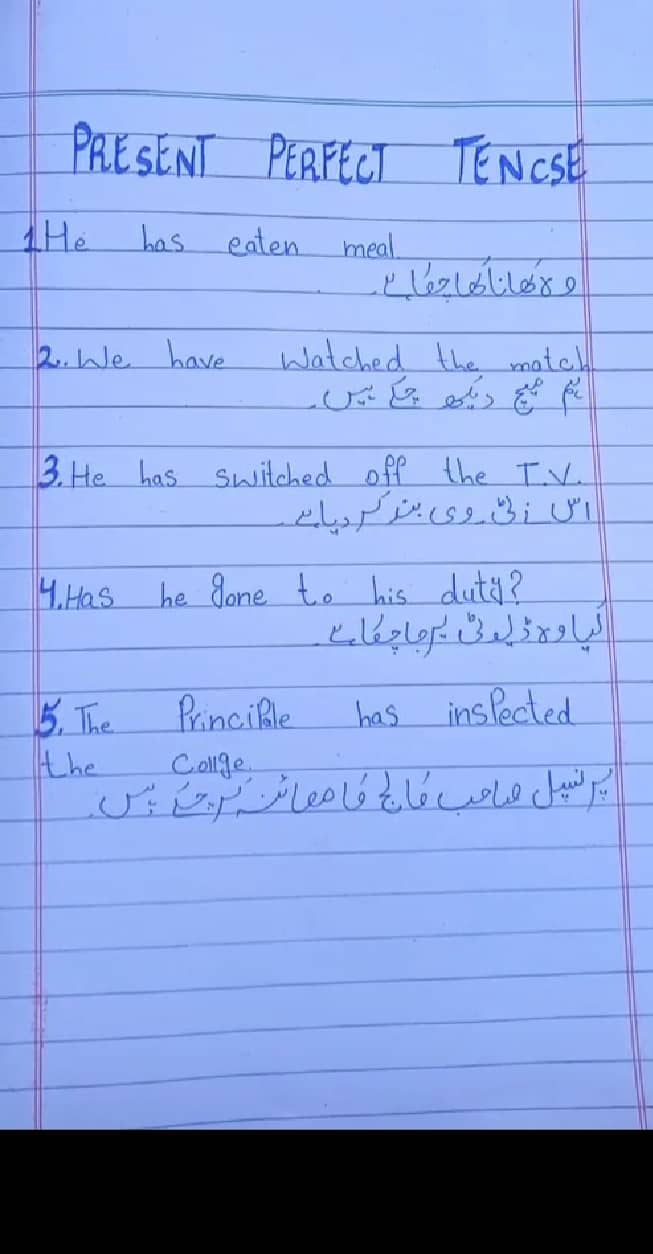 PRESENT PERFECT TENCSE
1 He has eaten meal.
وہ کھانا کھا چکا ہے۔
2. We have Watched the match
ہم میچ دیکھ چکے ہیں۔
3. He has switched off the T.V.
اس نے ٹی وی بند کر دیا ہے۔
4. Has he gone to his duty?
کیا وہ ڈیوٹی پر جا چکا ہے
5. The Principle has inspected
the Collge.
پرنسپل صاحب کالج کا معائنہ کر چکے ہیں۔